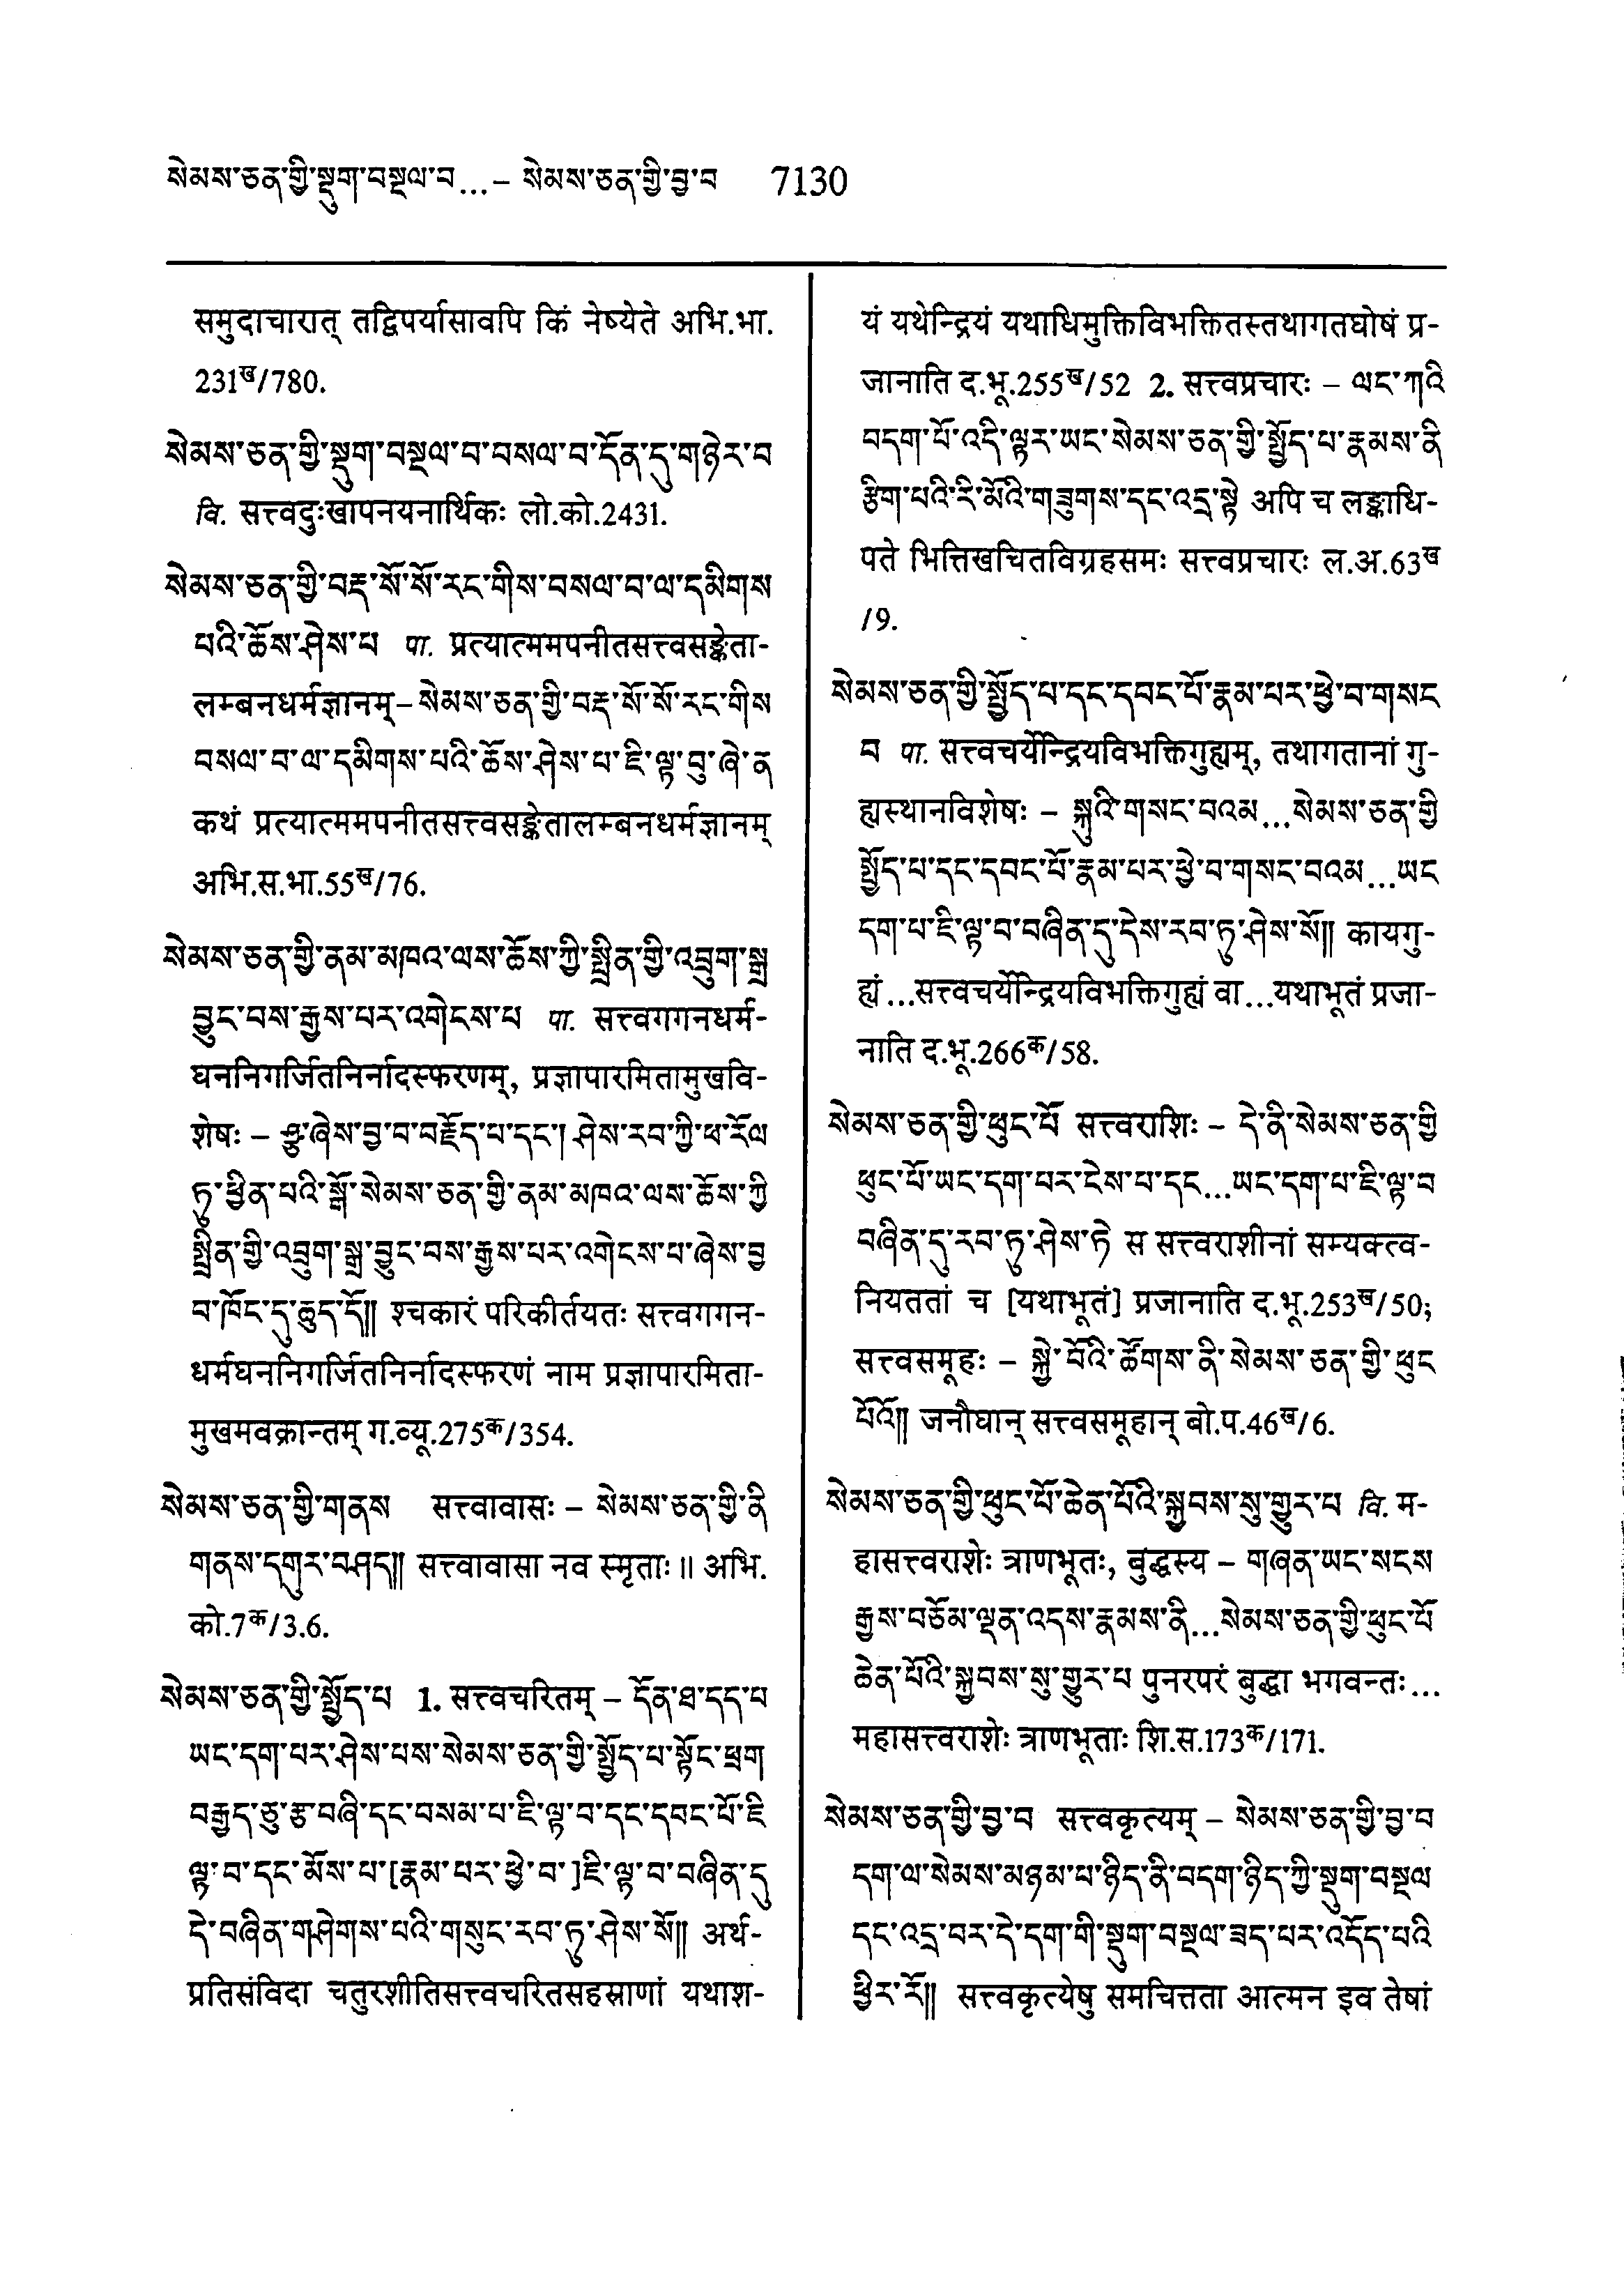 སེམས་ཅན་གྱི་སྡུག་བསྔལ་བ...– སེམས་ཅན་གྱི་བྱ་བ 7130
समुदाचारात् तद्विपर्यासावपि किं नेष्येते अभि.भा.
231ख/780.
སེམས་ཅན་གྱི་སྡུག་བསྔལ་བ་བསལ་བ་དོན་དུ་གཉེར་བ
वि. सत्त्वदुःखापनयनार्थिकः लो.को.2431.
སེམས་ཅན་གྱི་བརྡ་སོ་སོ་རང་གིས་བསལ་བ་ལ་དམིགས
པའི་ཆོས་ཤེས་པ पा. प्रत्यात्ममपनीतसत्त्वसङ्केता-
लम्बनधर्मज्ञानम्– སེམས་ཅན་གྱི་བརྡ་སོ་སོ་རང་གིས
བསལ་བ་ལ་དམིགས་པའི་ཆོས་ཤེས་པ་ཇི་ལྟ་བུ་ཞེ་ན
कथं प्रत्यात्ममपनीतसत्त्वसङ्केतालम्बनधर्मज्ञानम्
अभि.स.भा.55ख/76.
སེམས་ཅན་གྱི་ནམ་མཁའ་ལས་ཆོས་ཀྱི་སྤྲིན་གྱི་འབྲུག་སྒྲ
བྱུང་བས་རྒྱས་པར་འགེངས་པ पा. सत्त्वगगनधर्म-
घननिगर्जितनिर्नादस्फरणम्, प्रज्ञापारमितामुखवि-
शेषः – ཤྩ་ཞེས་བྱ་བ་བརྗོད་པ་དང་། ཤེས་རབ་ཀྱི་ཕ་རོལ
ཏུ་ཕྱིན་པའི་སྒོ་སེམས་ཅན་གྱི་ནམ་མཁའ་ལས་ཆོས་ཀྱི
སྤྲིན་གྱི་འབྲུག་སྒྲ་བྱུང་བས་རྒྱས་པར་འགེངས་པ་ཞེས་བྱ
བ་ཁོང་དུ་ཆུད་དོ།། श्चकारं परिकीर्तयतः सत्त्वगगन-
धर्मघननिगर्जितनिर्नादस्फरणं नाम प्रज्ञापारमिता-
मुखमवक्रान्तम् ग.व्यू.275क/354.
སེམས་ཅན་གྱི་གནས सत्त्वावासः – སེམས་ཅན་གྱི་ནི
གནས་དགུར་བཤད།། सत्त्वावासा नव स्मृताः॥ अभि.
को.7क/3.6.
སེམས་ཅན་གྱི་སྤྱོད་པ 1. सत्त्वचरितम् – དོན་ཐ་དད་པ
ཡང་དག་པར་ཤེས་པས་སེམས་ཅན་གྱི་སྤྱོད་པ་སྟོང་ཕྲག
བརྒྱད་ཅུ་རྩ་བཞི་དང་བསམ་པ་ཇི་ལྟ་བ་དང་དབང་པོ་ཇི
ལྟ་བ་དང་མོས་པ་[རྣམ་པར་ཕྱེ་བ་]ཇི་ལྟ་བ་བཞིན་དུ
དེ་བཞིན་གཤེགས་པའི་གསུང་རབ་ཏུ་ཤེས་སོ།། अर्थ-
प्रतिसंविदा चतुरशीतिसत्त्वचरितसहस्राणां यथाश-
यं यथेन्द्रियं यथाधिमुक्तिविभक्तितस्तथागतघोषं प्र-
जानाति द.भू.255ख/52 2. सत्त्वप्रचारः – ལང་ཀའི
བདག་པོ་འདི་ལྟར་ཡང་སེམས་ཅན་གྱི་སྤྱོད་པ་རྣམས་ནི
རྩིག་པའི་རི་མོའི་གཟུགས་དང་འདྲ་སྟེ अपि च लङ्काधि-
पते भित्तिखचितविग्रहसमः सत्त्वप्रचारः ल.अ.63ख
/9.
སེམས་ཅན་གྱི་སྤྱོད་པ་དང་དབང་པོ་རྣམ་པར་ཕྱེ་བ་གསང
བ पा. सत्त्वचर्येन्द्रियविभक्तिगुह्यम्, तथागतानां गु-
ह्यस्थानविशेषः – སྐུའི་གསང་བའམ...སེམས་ཅན་གྱི
སྤྱོད་པ་དང་དབང་པོ་རྣམ་པར་ཕྱེ་བ་གསང་བའམ...ཡང
དག་པ་ཇི་ལྟ་བ་བཞིན་དུ་དེས་རབ་ཏུ་ཤེས་སོ།། कायगु-
ह्यं...सत्त्वचर्येन्द्रियविभक्तिगुह्यं वा...यथाभूतं प्रजा-
नाति द.भू.266क/58.
སེམས་ཅན་གྱི་ཕུང་པོ सत्त्वराशिः – དེ་ནི་སེམས་ཅན་གྱི
ཕུང་པོ་ཡང་དག་པར་ངེས་པ་དང...ཡང་དག་པ་ཇི་ལྟ་བ
བཞིན་དུ་རབ་ཏུ་ཤེས་ཏེ स सत्त्वराशीनां सम्यक्त्व-
नियततां च [यथाभूतं] प्रजानाति द.भू.253ख/50;
सत्त्वसमूहः – སྐྱེ་བོའི་ཚོགས་ནི་སེམས་ཅན་གྱི་ཕུང
པོའོ།། जनौघान् सत्त्वसमूहान् बो.प.46ख/6.
སེམས་ཅན་གྱི་ཕུང་པོ་ཆེན་པོའི་སྐྱབས་སུ་གྱུར་པ वि. म-
हासत्त्वराशेः त्राणभूतः, बुद्धस्य – གཞན་ཡང་སངས
རྒྱས་བཅོམ་ལྡན་འདས་རྣམས་ནི...སེམས་ཅན་གྱི་ཕུང་པོ
ཆེན་པོའི་སྐྱབས་སུ་གྱུར་པ पुनरपरं बुद्धा भगवन्तः...
महासत्त्वराशेः त्राणभूताः शि.स.173क/171.
སེམས་ཅན་གྱི་བྱ་བ सत्त्वकृत्यम् – སེམས་ཅན་གྱི་བྱ་བ
དག་ལ་སེམས་མཉམ་པ་ཉིད་ནི་བདག་ཉིད་ཀྱི་སྡུག་བསྔལ
དང་འདྲ་བར་དེ་དག་གི་སྡུག་བསྔལ་ཟད་པར་འདོད་པའི
ཕྱིར་རོ།། सत्त्वकृत्येषु समचित्तता आत्मन इव तेषां